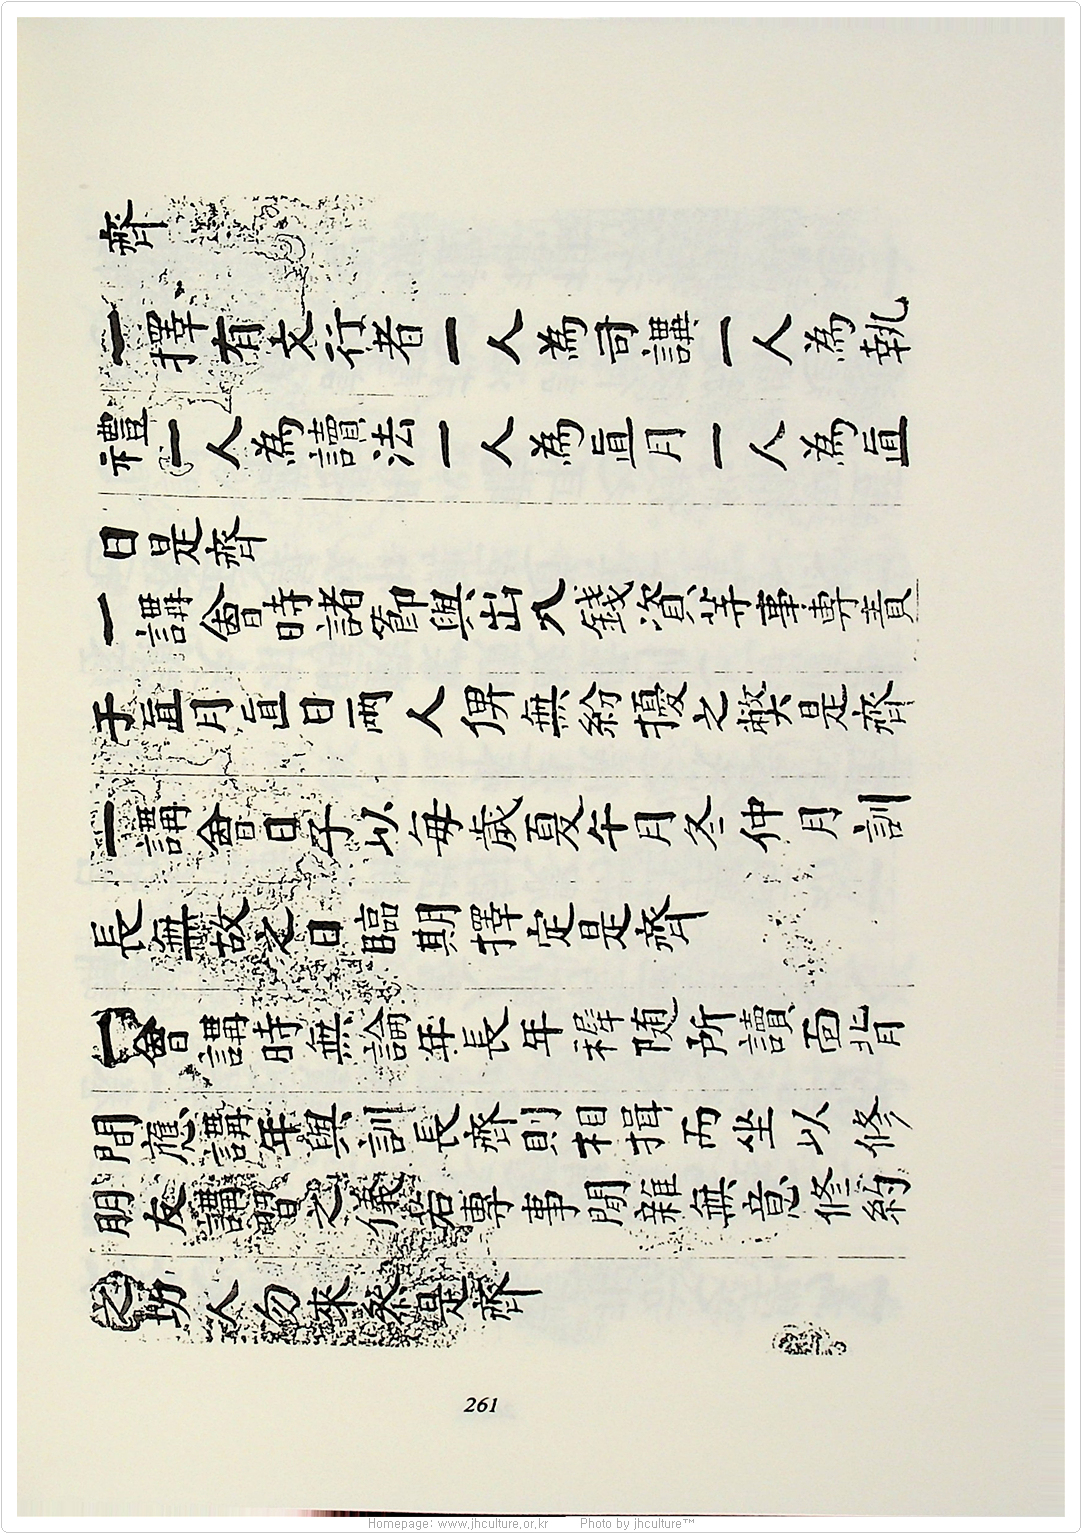 齊
一擇有文行者一人為司講一人為執
禮一人為讀法一人為直月一人為直
日是齊
一講會時諸節與出入錢資等事專責
于直月直日兩人俾無紛擾之獘是齊
一講會日子以每歲夏午月冬仲月訓
長無故之日臨期擇定是齊
一會講時無論年長年穉随所讀面背
間應講年與訓長齊則相揖而坐以修
朋友講習之儀若專事閙雜無意修約
之坊人勿來叅是齊
261
Homepage: www.jhculture.or.kr Photo by jhculture™